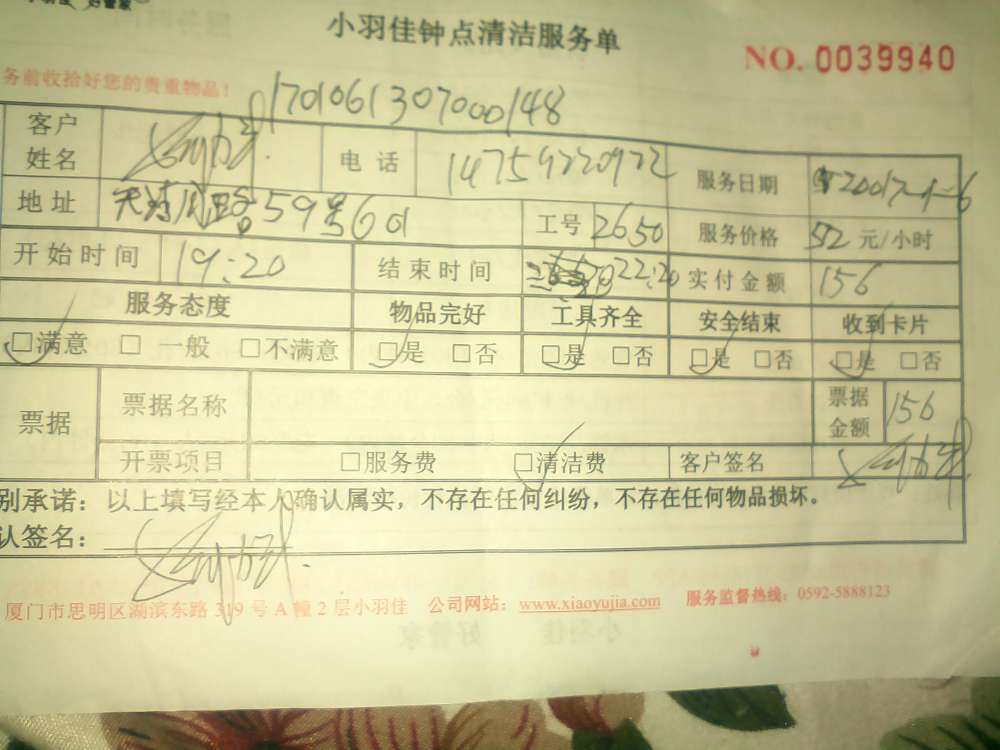 小羽佳 好管家
小羽佳钟点清洁服务单
NO. 0039940
务前收拾好您的贵重物品!
170106130700148
客户姓名 电话 14759220922 服务日期 2017-1-6
地址 59号601 工号 2650 服务价格 52 元/小时
开始时间 19:20 结束时间 22:20 实付金额 156
服务态度 物品完好 工具齐全 安全结束 收到卡片
□满意 □ 一般 □不满意 □是 □否 □是 □否 □是 □否 □是 □否
票据 票据名称 票据金额 156
开票项目 □服务费 □清洁费 客户签名
别承诺：以上填写经本人确认属实，不存在任何纠纷，不存在任何物品损坏。
认签名：
厦门市思明区湖滨东路 319 号 A 幢 2 层小羽佳 公司网站：www.xiaoyujia.com 服务监督热线：0592-5888123